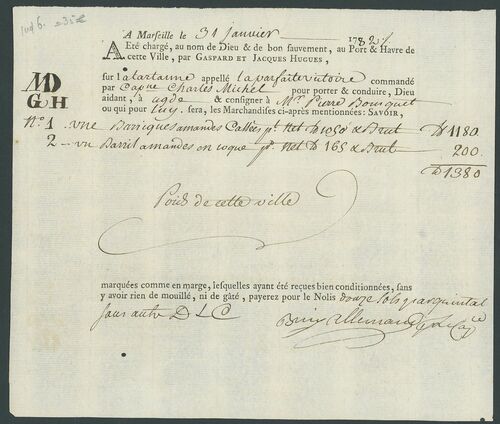 A Marseille le 31 janvier 1782
A Eté chargé, au nom de Dieu & de bon sauvement, au Port & Havre de
cette Ville, par GASPARD ET JACQUES HUGUES,
sur la tartanne appellé la parfaite victoire commandé
par Capne Charles Michel pour porter & conduire, Dieu
aidant, à agde & consigner à Mr. Pierre Bousquet
ou qui pour luy sera, les Marchandises ci-après mentionées: SAVOIR,
MD
G H
No. 1 une Barrique amandes Cassées pt. Net 1050 & Brut 1180
2 un Barril amandes en coque pt. Net 165 & Brut 200
1380
Poids de cette ville
marquées comme en marge, lesquelles ayant été reçues bien conditionnées, sans
y avoir rien de mouillé, ni de gâté, payerez pour le Nolis douze sols par quintal
sans autre